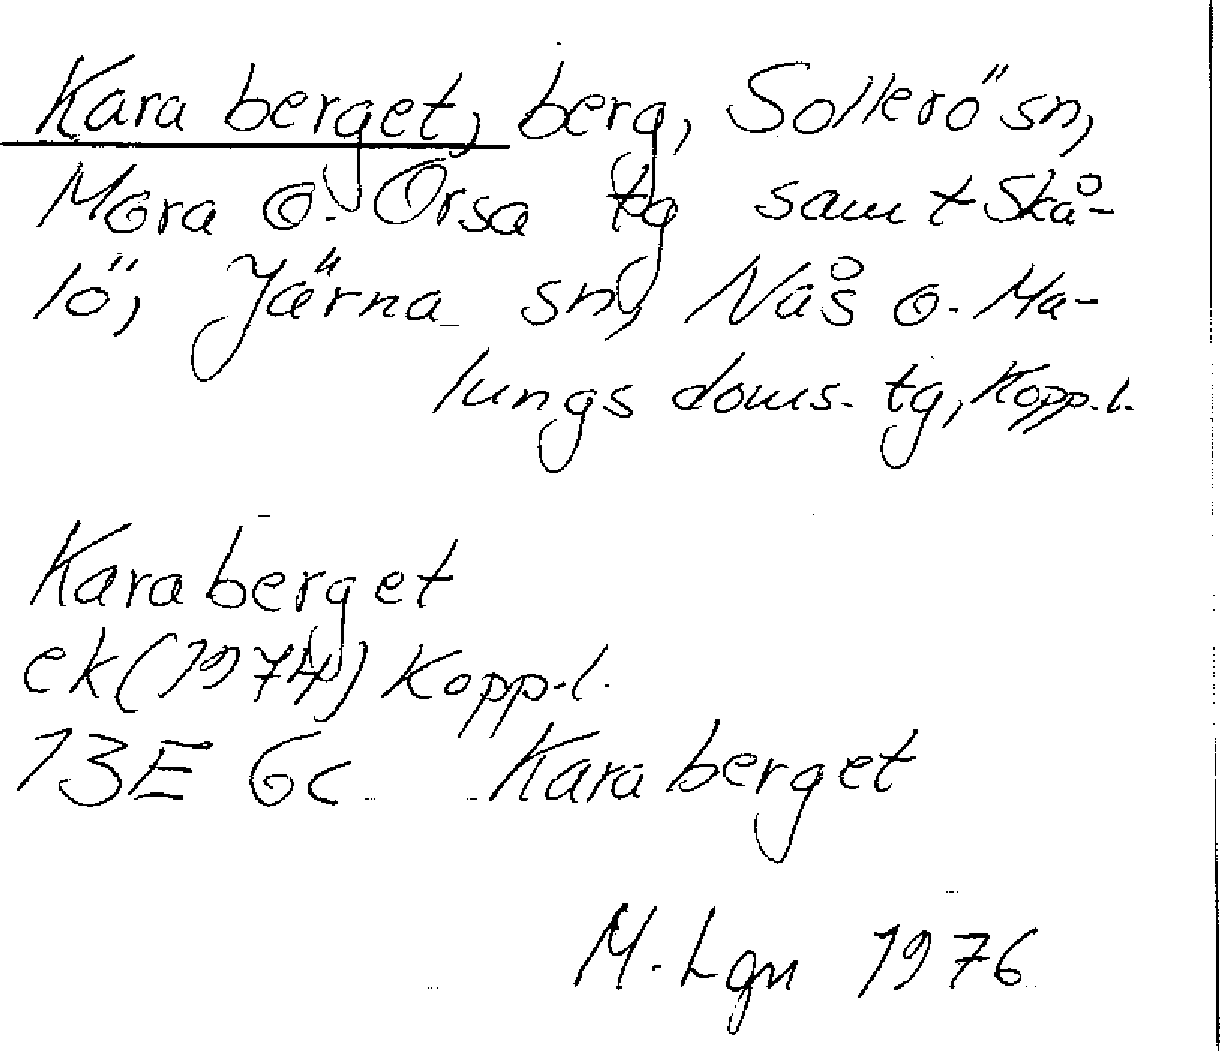 Karaberget, berg, Sollerö sn,
Mora o. Orsa tg samt Skå-
lö, Järna sn, Nås o. Ma-
lungs doms. tg, Kopp.l.
Karaberget
ek (1974) Kopp.l.
13E 6c Karaberget
M. Lgn 1976